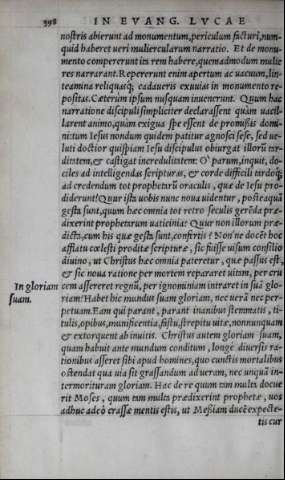 398 IN EVANG. LVCAE
nostris abierunt ad monumentum, periculum facturi, num-
quid haberet ueri muliercularum narratio. Et de monu-
mento compererunt ita rem habere, quemadmodum mulie
res narrarant. Repererunt enim apertum ac uacuum, lin-
teamina reliquaq́; cadaueris exuuias in monumento re-
positas. Cæterum ipsum nusquam inuenerunt. Quum hac
narratione discipuli simpliciter declarassent quàm uacil-
larent animo, quàm exigua spe essent de promissis domi-
ni: tum Iesus nondum quidem patitur agnosci sese, sed ue-
luti doctior quispiam Iesu discipulus obiurgat illorũ tar-
ditatem, & castigat incredulitatem: O parum, inquit, do-
ciles ad intelligendas scripturas, & corde difficili tardoq́;
ad credendum tot prophetarũ oraculis, quæ de Iesu pro-
diderunt! Quur ista uobis nunc noua uidentur, posteaquã
gesta sunt, quum hæc omnia tot retro seculis gerẽda præ-
dixerint prophetarum uaticinia? Quur non illorum præ-
dicta, cum his quæ gesta sunt, confertis? Nonne docẽt hoc
afflatu cœlesti proditæ scripturæ, sic fuisse uisum consilio
diuino, ut Christus hæc omnia pateretur, quæ passus est,
& sic noua ratione per mortem repararet uitam, per cru
cem assereret regnũ, per ignominiam intraret in suã glo-
In gloriam suam.
riam? Habet hic mundus suam gloriam, nec uerã nec per-
petuam. Eam qui parant, parant inanibus stemmatis, ti-
tulis, opibus, munificentia, fastu, strepitu uitæ, nonnunquam
& extorquent ab inuitis. Christus autem gloriam suam,
quam habuit ante mundum conditum, longè diuersis ra-
tionibus asseret sibi apud homines, quo cunctis mortalibus
ostendat qua uia sit grassandum ad ueram, nec unquã in-
termorituram gloriam. Hac de re quum tam multa docue
rit Moses, quum tam multa prædixerint prophetæ, uos
adhuc adeò crassæ mentis estis, ut Messiam ducẽ expecte-
tis cur